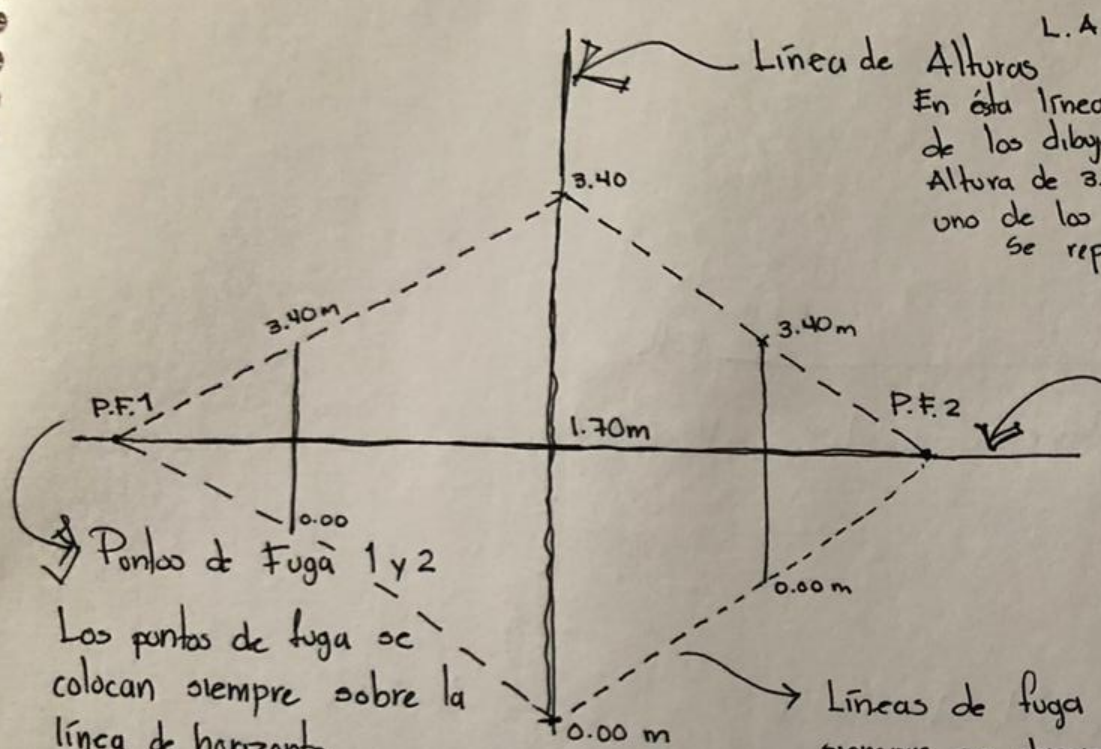 L.A
Línea de Alturas
En ésta línea
de los dibuj
Altura de 3.
uno de los
Se rep
3.40
3.40m
3.40m
P.F.1
P.F.2
1.70m
0.00
Pontos de Fuga 1 y 2
0.00 m
Los pontos de fuga se
colocan siempre sobre la
línea de horizont
0.00 m
Líneas de fuga